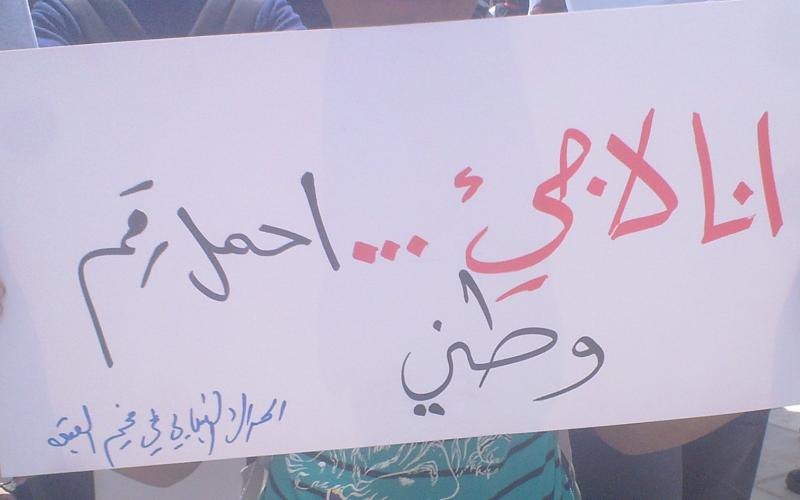 انا لاجئ ... احمل رقم
وطني
الحراك الشبابي في مخيم البقعة